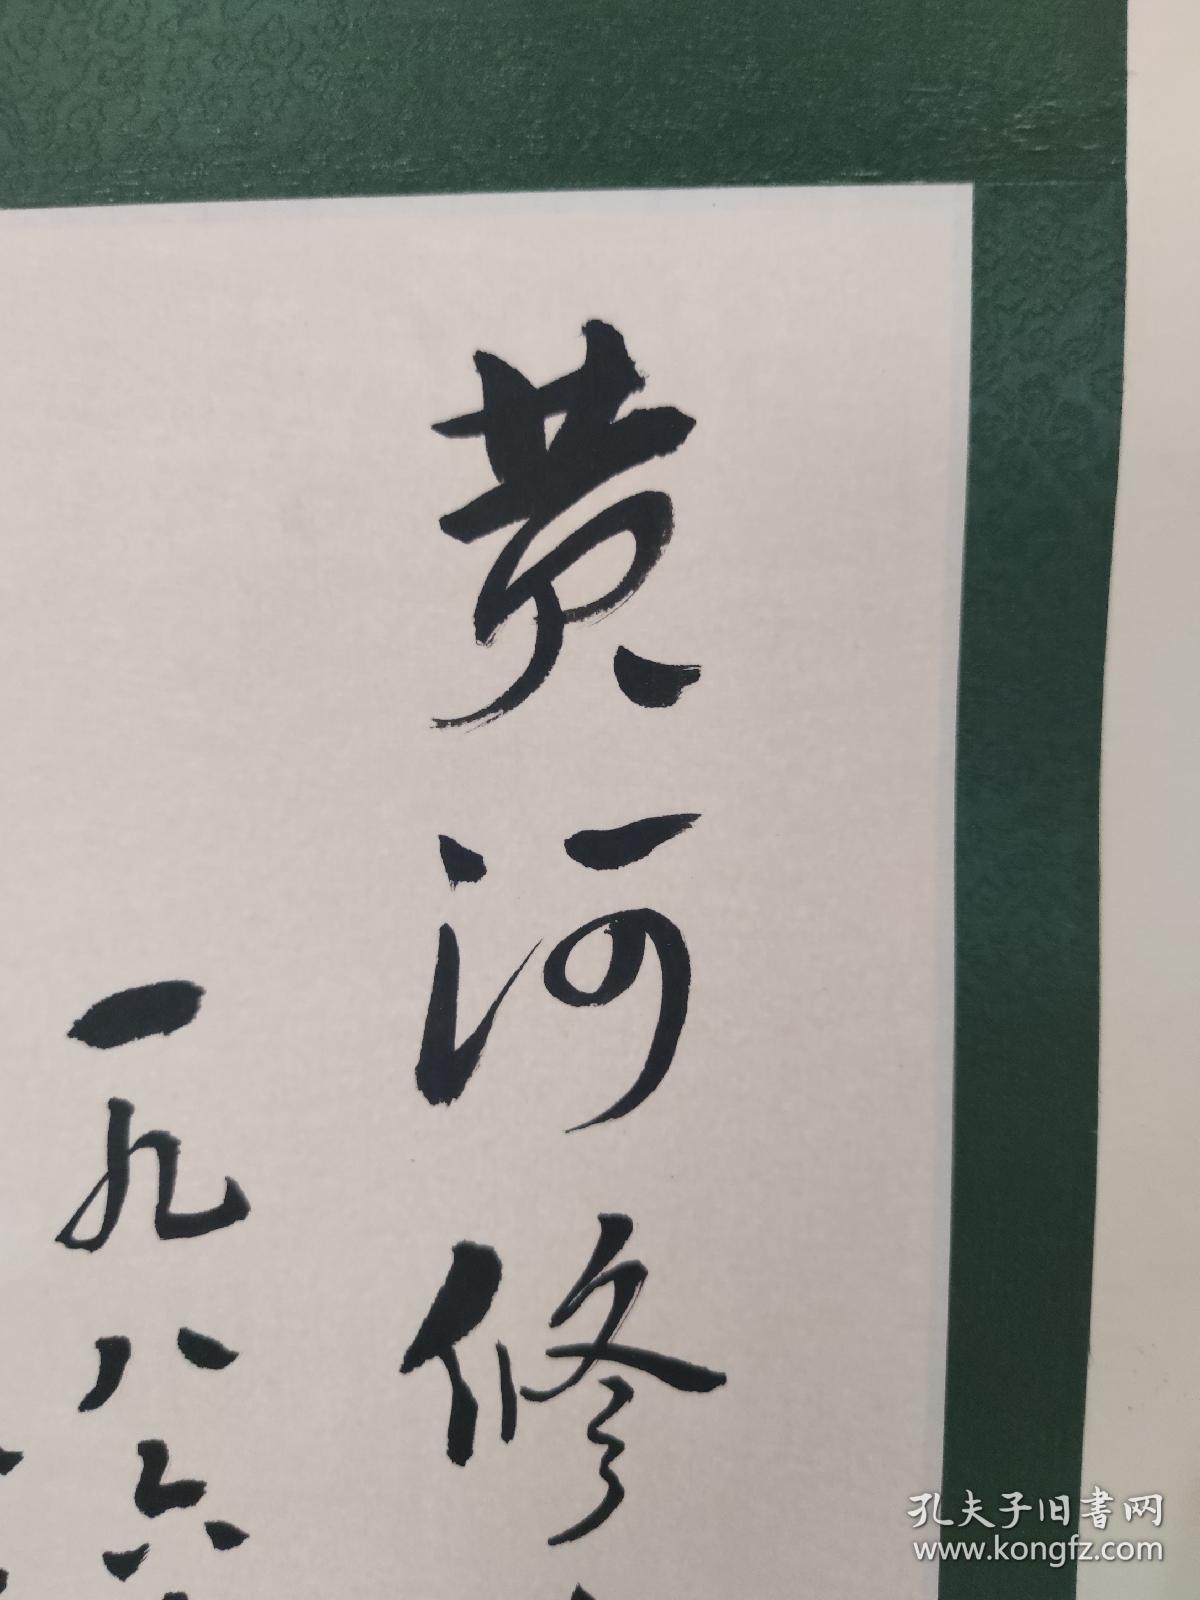 黄河修
一九八六
孔夫子旧書网
www.kongfz.com